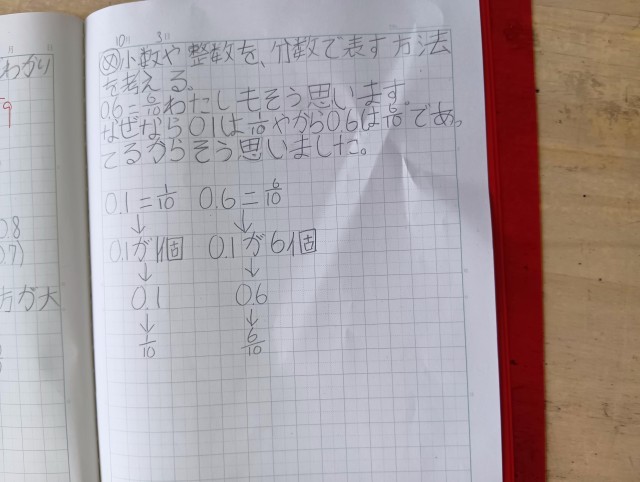 わかり
9
0.8
0.7)
方が大
10 3
め 小数や整数を、分数で表す方法
を考える。
0.6=6/10わたしもそう思います。
なぜなら0.1は1/10やから0.6は6/10であっ
てるからそう思いました。
0.1=1/10 0.6=6/10
↓ ↓
0.1が1個 0.1が6個
↓ ↓
0.1 0.6
↓ ↓
1/10 6/10